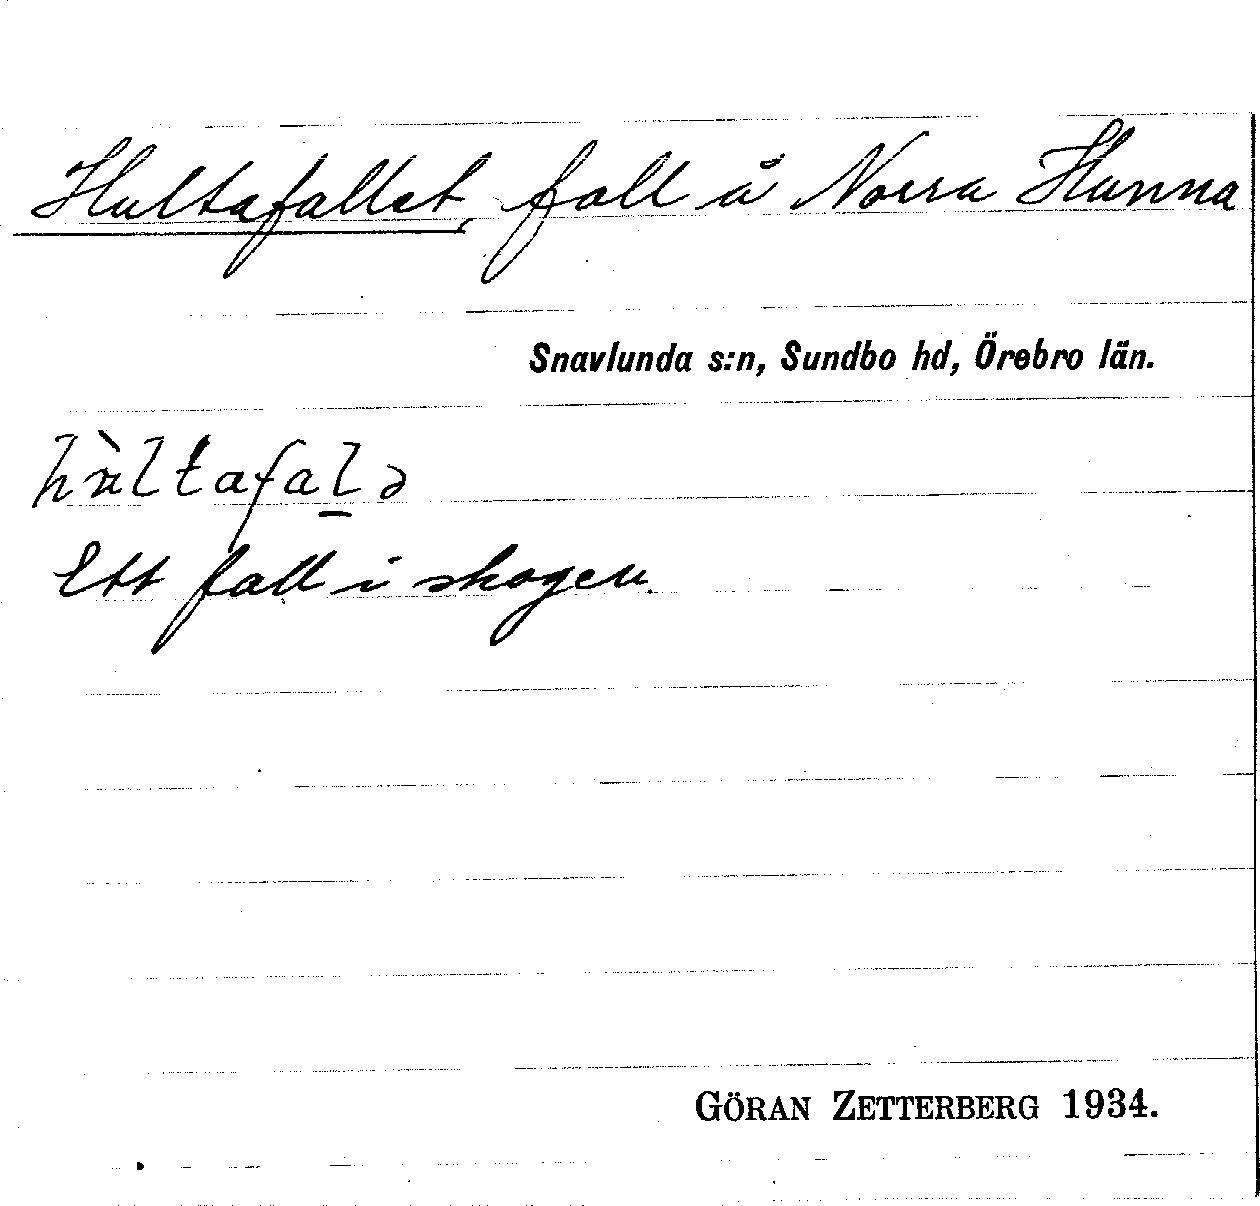 Hultafallet, fall å Norra Hunna
Snavlunda s:n, Sundbo hd, Örebro län.
hùltafalə
Ett fall i skogen.
GÖRAN ZETTERBERG 1934.